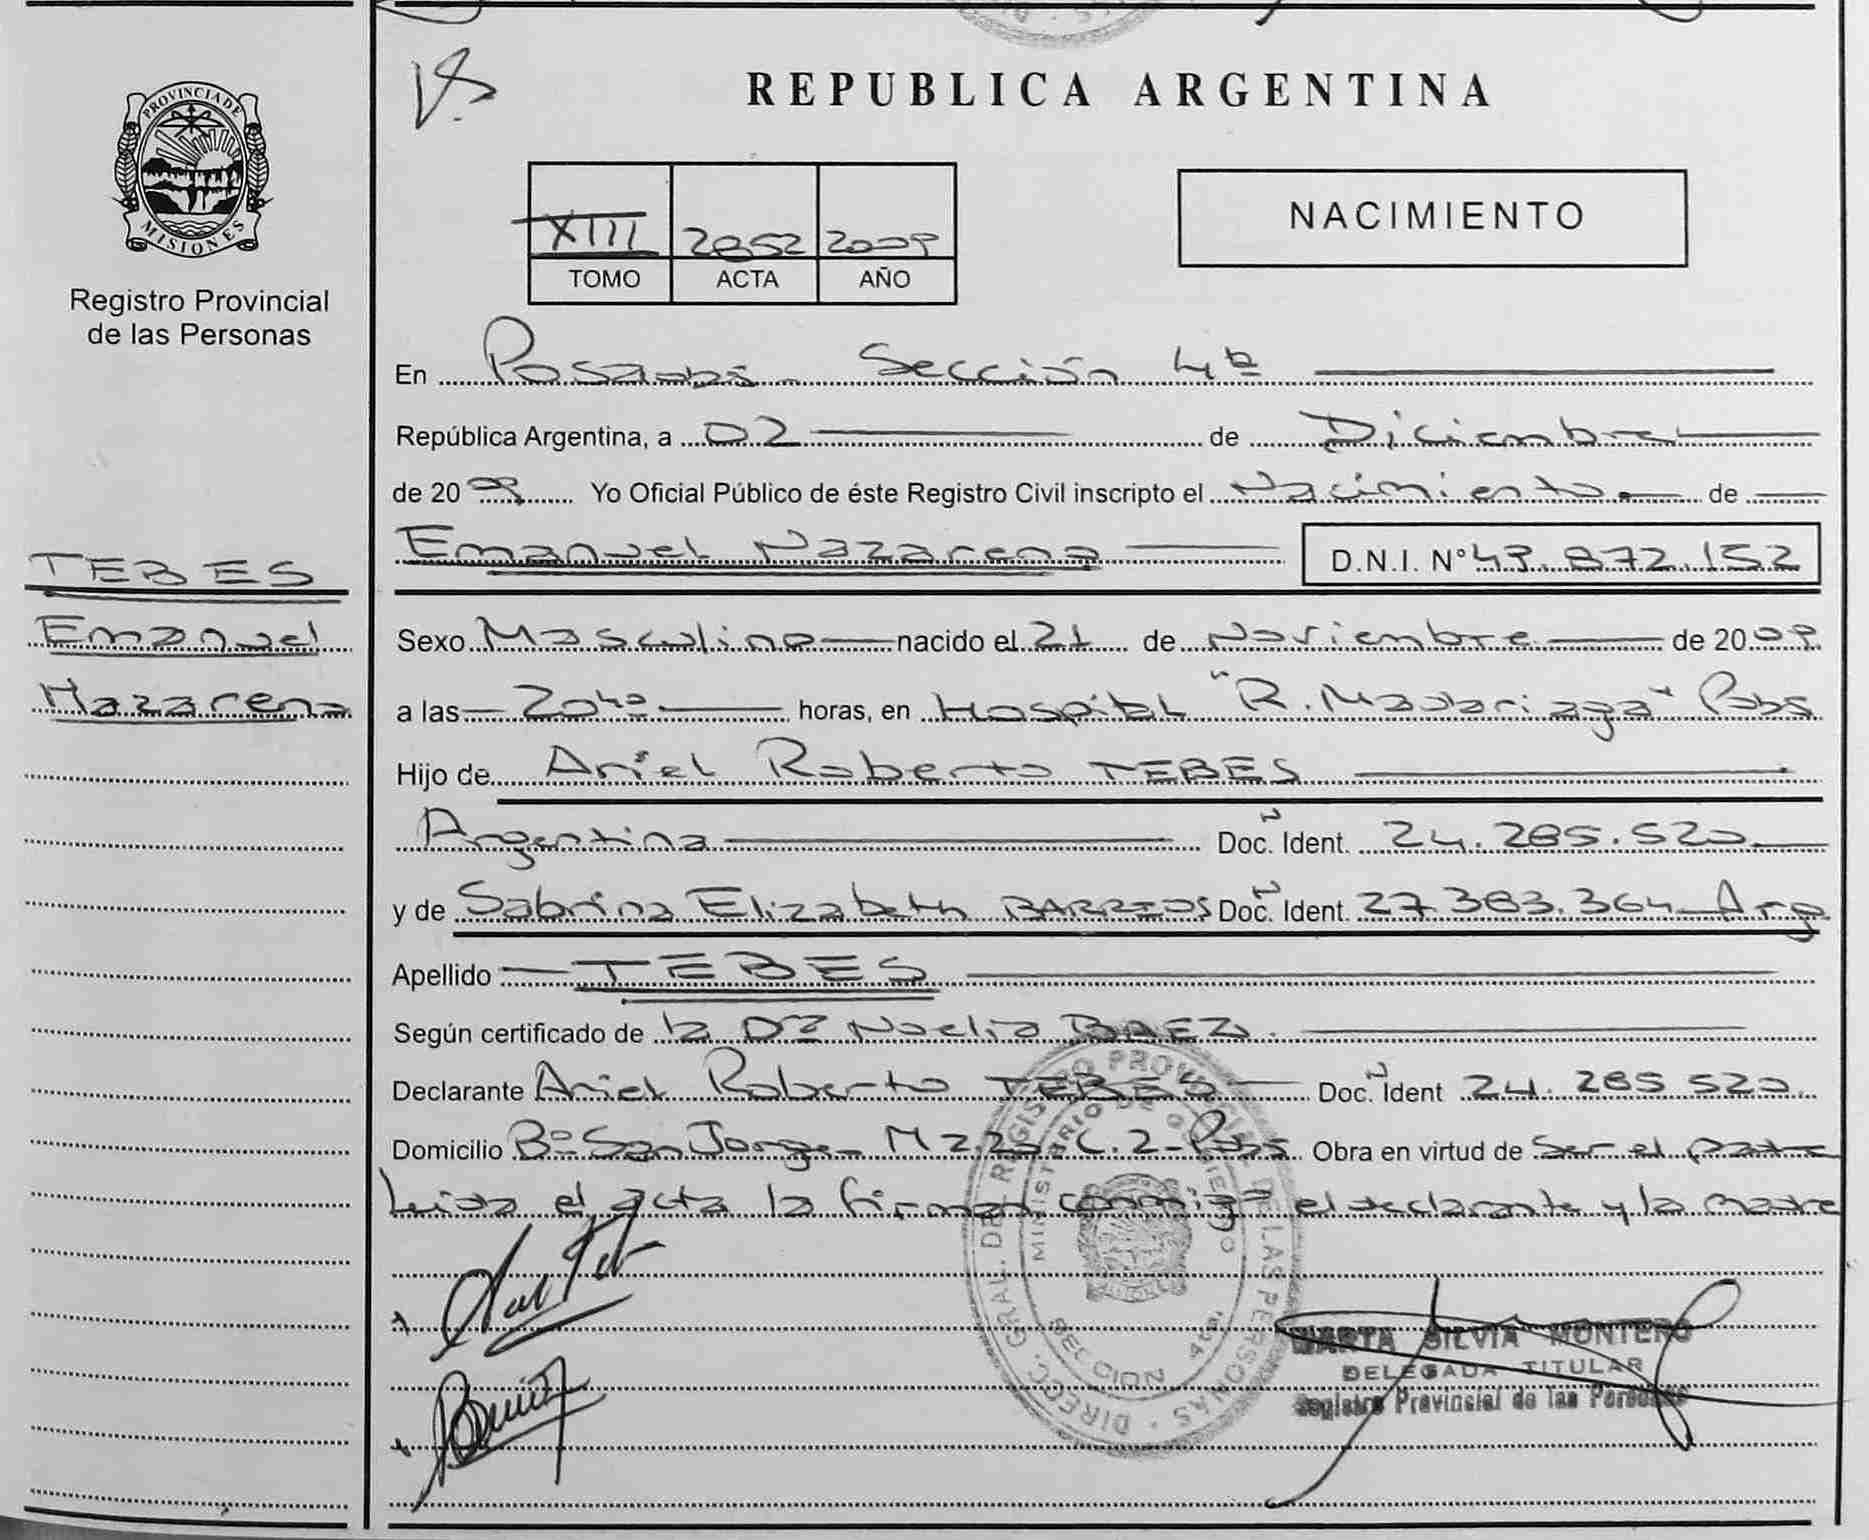 PROVINCIA DE
MISIONES
Registro Provincial
de las Personas
TEBES
Emanuel
Nazareno
REPUBLICA ARGENTINA
XIII 2852 2009
TOMO ACTA AÑO
NACIMIENTO
En Posadas - Sección 4ta
República Argentina, a 02 de Diciembre
de 2009 Yo Oficial Público de éste Registro Civil inscripto el Nacimiento de
Emanuel Nazareno D.N.I. N° 49.872.152
Sexo Masculino nacido el 21 de Noviembre de 2009
a las 20:40 horas, en Hospital "R. Madariaga" Pdas
Hijo de Ariel Roberto TEBES
Argentina Doc. Ident. 24.285.520
y de Sabrina Elizabeth BARRIOS Doc. Ident. 27.383.364 Arg
Apellido TEBES
Según certificado de la Dra Noelia BAEZ.
Declarante Ariel Roberto TEBES Doc. Ident 24.285.520.
Domicilio Bº San Jorge - Mz 23 C. 2 - Pdas Obra en virtud de ser el padre
Leida el acta la firman conmigo el declarante y la madre
DIRECC. GRAL. DEL REGISTRO PROVINCIAL DE LAS PERSONAS
MINISTERIO DE GOBIERNO
SECCION 4ta.
MARTA SILVIA MONTERO
DELEGADA TITULAR
Registro Provincial de las Personas